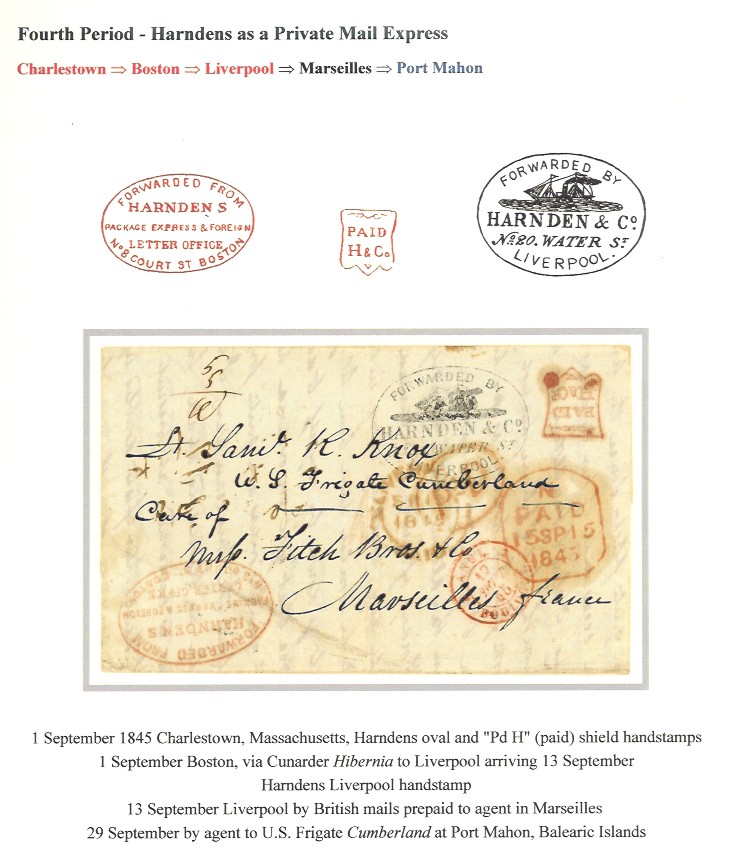 Fourth Period - Harndens as a Private Mail Express
Charlestown ⇒ Boston ⇒ Liverpool ⇒ Marseilles ⇒ Port Mahon
FORWARDED FROM
HARNDENS
PACKAGE EXPRESS & FOREIGN
LETTER OFFICE
No 8 COURT ST BOSTON
PAID
H & Co
FORWARDED BY
HARNDEN & Co.
No. 20. WATER ST
LIVERPOOL.
5
5
10
FORWARDED BY
HARNDEN & Co
WATER ST
LIVERPOOL
PAID
H & Co
Lt. Saml. R. Knox
U. S. Frigate Cumberland
Care of
Mess. Fitch Bros. & Co
Marseilles france
PAID
15 SP 15
1845
FORWARDED FROM
HARNDENS
PACKAGE EXPRESS & FOREIGN
LETTER OFFICE
1 September 1845 Charlestown, Massachusetts, Harndens oval and "Pd H" (paid) shield handstamps
1 September Boston, via Cunarder Hibernia to Liverpool arriving 13 September
Harndens Liverpool handstamp
13 September Liverpool by British mails prepaid to agent in Marseilles
29 September by agent to U.S. Frigate Cumberland at Port Mahon, Balearic Islands